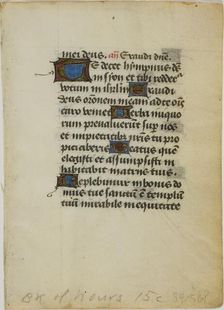 mei deus. an Exaudi dne.
Te decet hympnus ds
in syon et tibi reddet
votum in ihrlm Exaudi
deus oronem meam ad te ois
caro veniet Verba iniquo
rum prevaluerut sup nos
et impietatibz nris tu pro
piciaberis Beatus quem
elegisti et assumpsisti in
habitabit in atriis tuis.
Replebimur in bonis do
mus tue sanctum e templu
tuum mirabile in equitate
Bk of Hours 15 c